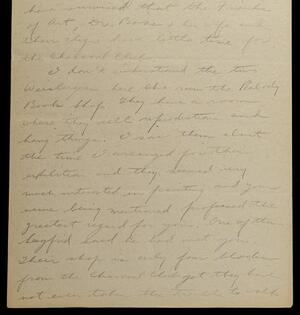 have surmised that the Friends
of Art, Dr. Boas & his wife and
their ilk have little time for
the Charcoal Club.
I don't understand the two
Weisbergers here who run the Peabody
Book Shop. They have a room
where they sell reproductions and
hang things. I saw them about
the time I arranged for their
exhibition and they seemed very
much interested in painting and your
name being mentioned professed the
greatest regard for you. One of them
Siegfried said he had met you.
Their shop is only four blocks
from the Charcoal Club yet they have
not even taken the trouble to walk